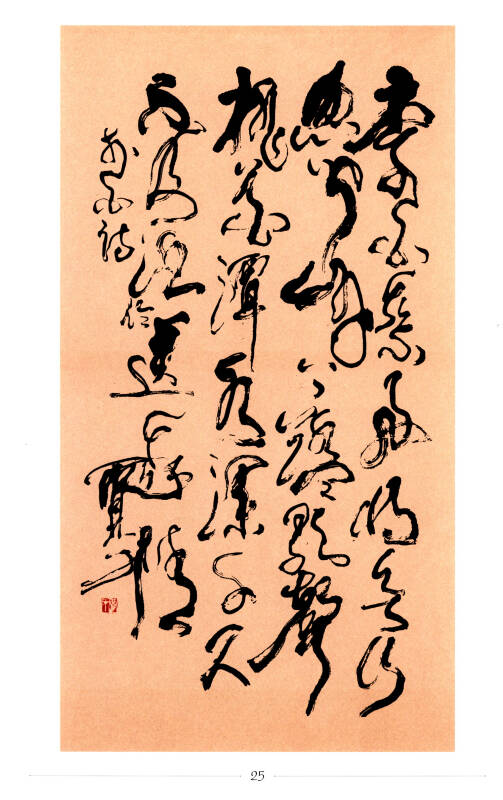 李白乘舟將欲行
忽聞岸上踏歌聲
桃花潭水深千尺
不及汪倫送我情
李白詩
25